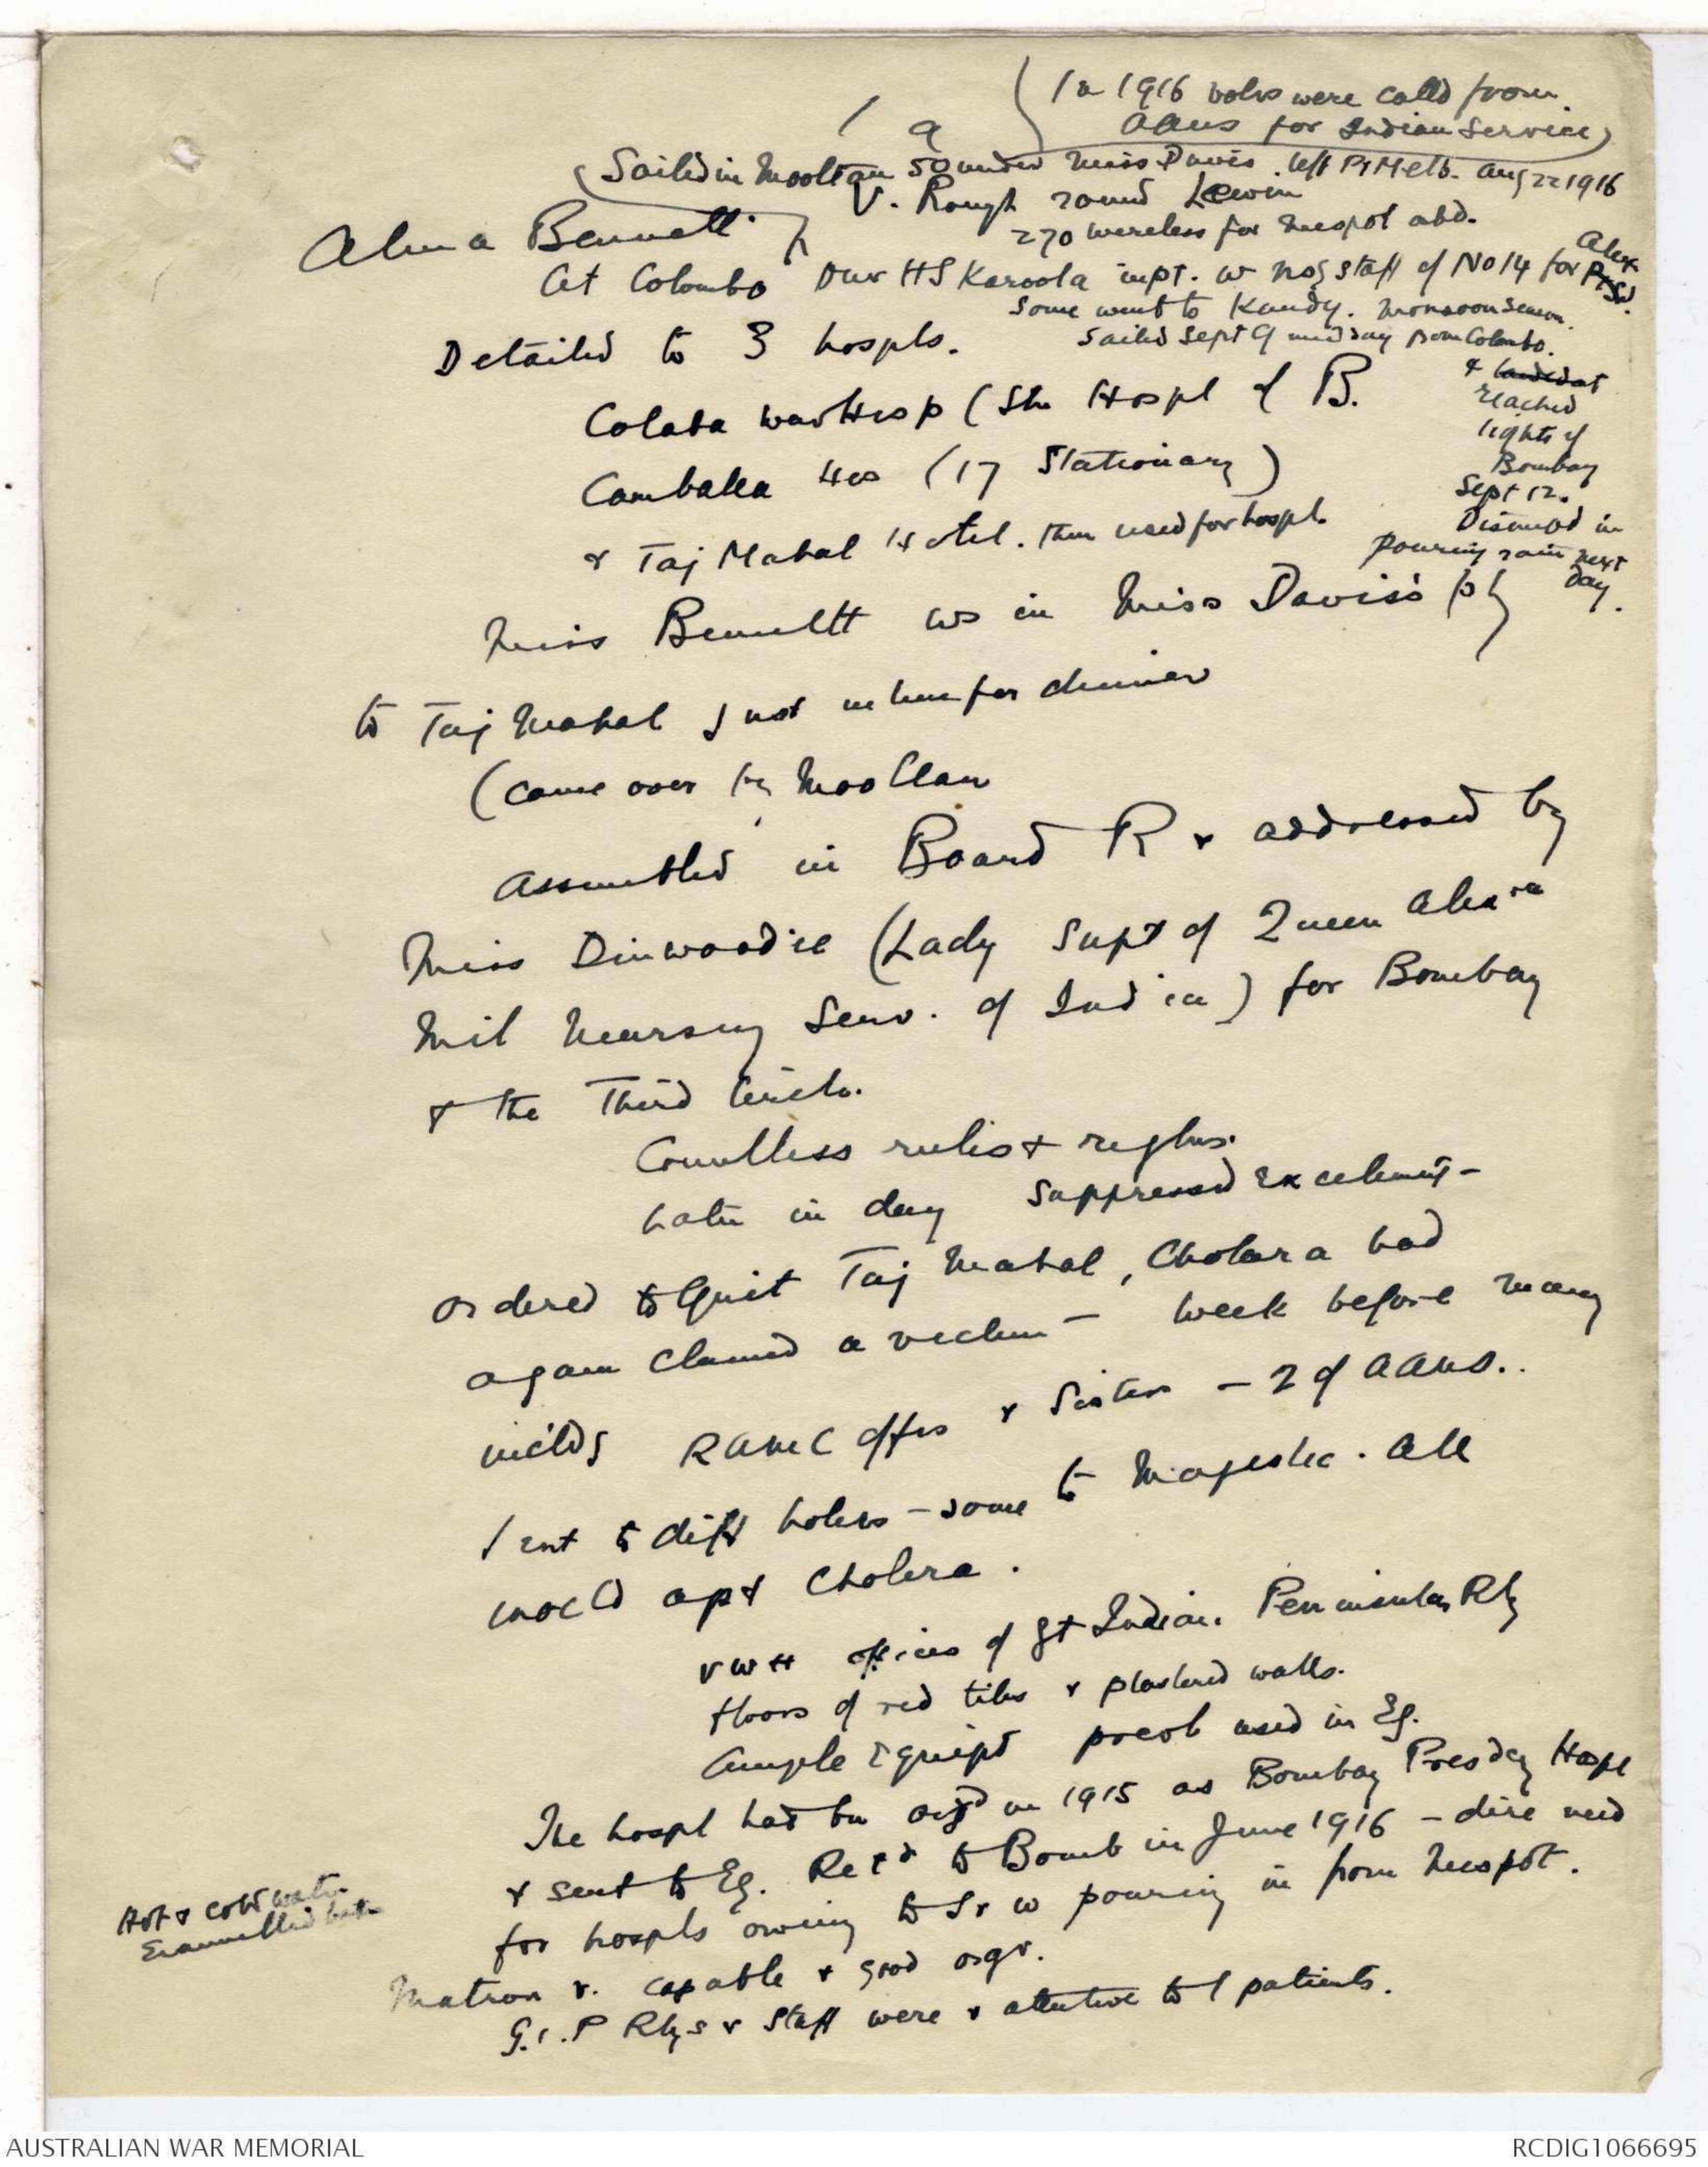 1 a
(In 1916 vols were called from
AANS for Indian Service)
(Sailed in Mooltan 50 under Miss Davis. left Pt Melb. Aug 22 1916
V. Rough round Leewin
270 wireless for Mespot abd.
Alma Bennett
At Colombo Our HS Karoola inpt. w nsg staff of No 14 for Alex
Some went to Kandy. Monsoon Season.
Sailed Sept 9 midday from Colombo.
& landed at
reached
lights of
Bombay
Sept 12.
Disembd in
pouring rain next
day.
Detailed to 3 hospls.
Colaba War Hosp (Stn Hospl of B.
Cambala Hos (17 Stationary)
& Taj Mahal Hotel. then used for hospl.
Miss Bennett ws in Miss Davis's pty
to Taj Mahal just in time for dinner
(came over by Mooltan
Assembled in Board R & addressed by
Miss Dinwoodie (Lady Supt of Queen Alexra
Mil Nursing Serv. of India) for Bombay
& the Third Circle.
Countless rules & reglns.
Late in day suppressed excitemt -
ordered to Quit Taj Mahal, Cholera had
again claimed a victim - week before many
RAMC offrs & Sisters - 2 of AANS..
Sent to difft hotels - some to Majestic. All
inocld agst Cholera.
VWH offices of Gt Indian Peninsular Rly
floors of red tiles & plastered walls.
Ample equipt prevly used in Eg.
The hospl had bn orgd in 1915 as Bombay Presdcy Hospl
& sent to Eg. Retd to Bomb in June 1916 - dire need
for hospls owing to S & w pouring in from Mespot.
Hot & cold water.
Enamelled baths
Matron v. capable & good orgr.
G.I.P Rlys & Staff were v attentive to / patients.
AUSTRALIAN WAR MEMORIAL
RCDIG1066695